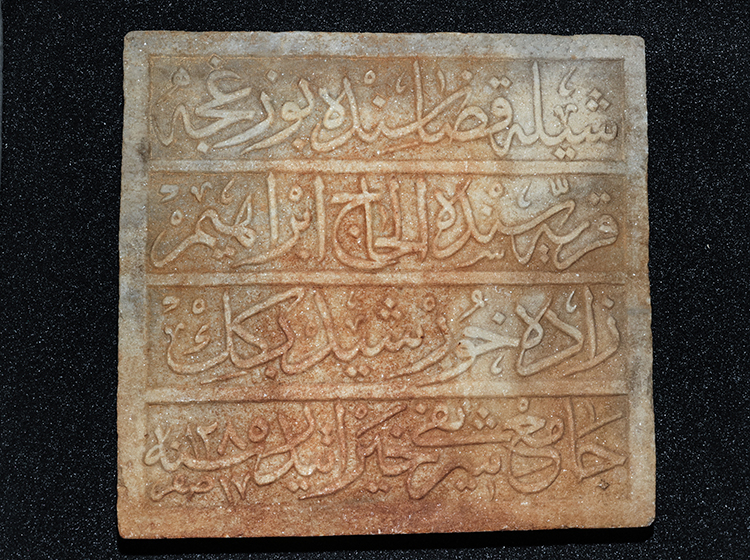 شیله قضاسنده بوزغجه
قریه سنده الحاج ابراهیم
زاده خورشید بكك
جامع شریفی خیراتیدر سنه ١٢٨٥
١٧ صفر